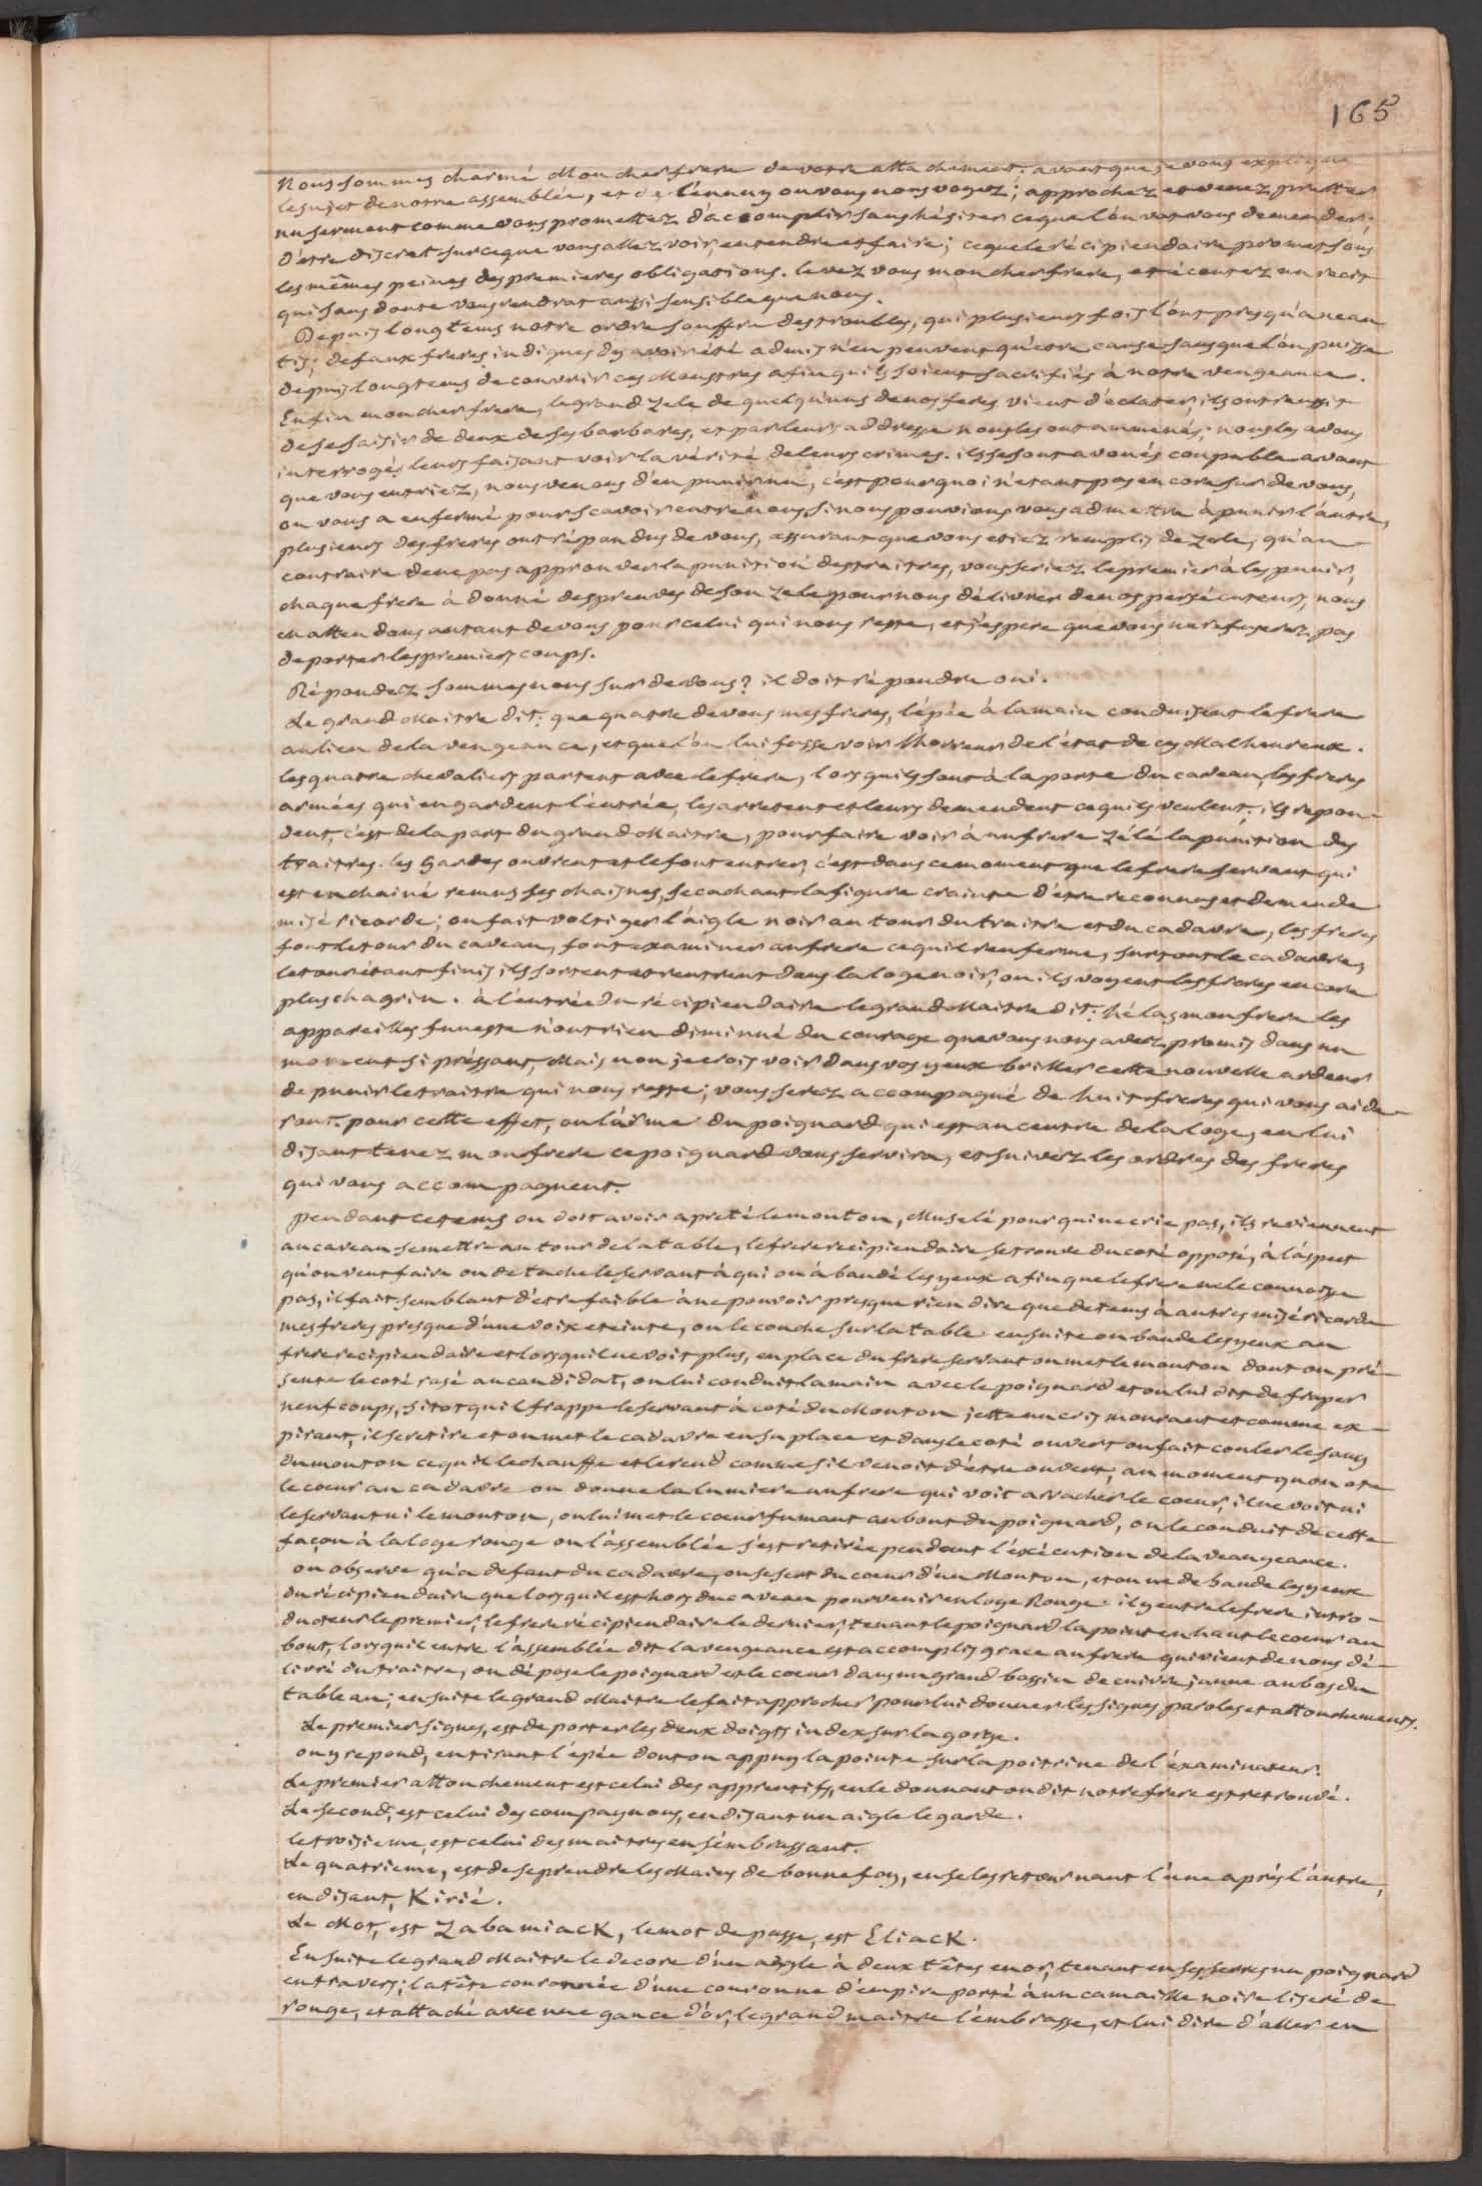 165
Nous sommes charmé Mon cher frere de votre attachement. avant que je vous explique
le sujet de notre assemblée, et de l'ennuy ou vous nous voyez; approchez et venez pretter
un serment comme vous promettez d'accomplir sans hésiter ce que l'on vat vous demender.
d'etre discret sur ce que vous allez voir, entendre et faire; ce que le récipiendaire promet sous
les mêmes peines des premieres obligations. levez vous mon cher frere, et écoutez un recit
qui sans doute vous rendrat aussi sensible que nous.
Depuis longtems notre ordre souffre des troubles, qui plusieurs fois l'ont presqu'anean
tis; de faux freres indignes dy avoir été admis n'en peuvent qu'etre cause sans que l'on puisse
depuis longtems decouvrir ces Monstres afin qu'ils soient sacrifiés à notre vengeance.
Enfin mon cher frere, le grand zele de quelqu'uns de nos feres vient d'eclater, ils ont reussit
de se saisir de deux de ses barbares, et par leurs addresse nous les ont ammenés; nous les avons
interrogés leurs faisant voir la vérité de leurs crimes. ils se sont avoués coupable avant
que vous entriez, nous venons d'en punir un, c'est pourquoi n'etant pas encore sur de vous,
on vous a enfermé pour scavoir entre nous si nous pouvions vous admettre à punir l'autre,
plusieurs des freres ont répondus de vous, assurant que vous etiez remplis de zele, qu'au
contraire de ne pas approuver la punition des traitres, vous seriez le premier à les punir,
chaque frere à donné des preuves de son zele pour nous délivrer de nos persécuteurs, nous
en attendons autant de vous pour celui qui nous reste, et j'espere que vous ne refuserez pas
de porter les premiers coups.
Répondez sommes nous sur de vous? il doit répondre oui.
Le grand Maitre dit: que quatre de vous mes freres, l'épée à la main conduisent le frere
au lieu de la vengeance, et que l'on lui fasse voir l'horreur de l'état de ces Malheureux.
les quatre chevaliers partent avec le frere, lors qu'ils sont à la porte du caveau, les freres
armées qui en gardent l'entrée, les arretent et leurs demendent ce qu'ils veulent; ils repon-
dent, c'est de la part du grand Maitre, pour faire voir à un frere zélé la punition des
traitres. les Gardes ouvrent et le font entrer, c'est dans ce moment que le frere servant qui
est enchainé remus ses chaisnes, se cachant la figure crainte d'être reconnus et demende
miséricorde; on fait voltiger l'aigle noir autour du traitre et du cadavre, les freres
font le tour du caveau, font examiner au frere ce qu'il renferme, surtout le cadavre,
le tour étant finis, ils sortent et rentrent dans la loge noir, ou ils voyent les freres encore
plus chagrin. à l'entrée du récipiendaire le grand Maitre dit: hélas mon frere les
appareilles funeste n'ont rien diminué du courage que vous nous avez promis dans un
moment si préssant, Mais non je crois voir dans vos yeux briller cette nouvelle ardeur
de punir le traitre qui nous reste; vous serez accompagné de huit freres qui vous aide-
ront. pour cette effet, on l'arme du poignard qui est au centre de la loge, en lui
disant tenez mon frere ce poignard vous servira, et suivez les ordres des freres
qui vous accompagnent.
pendant ce tems on doit avoir apreté le mouton, Muselé pour qu'il ne crie pas, ils reviennent
au caveau se mettre autour de la table, le frere recipiendaire se trouve du coté opposé, à l'aspect
qu'on veut faire on detache le servant à qui on à bandé les yeux afin que le frere ne le connoisse
pas, il fait semblant d'etre faible à ne pouvoir presque rien dire que de tems à autres miséricorde
mes freres presque d'une voix eteinte, on le couche sur la table ensuite on bande les yeux au
frere recipiendaire et lorsqu'il ne voit plus, en place du frere servant on met le mouton dont on pré-
sente le coté rasé au candidat, on lui conduit la main avec le poignard et on lui dit de fraper
neuf coups, sitot qu'il frappe le servant à coté du Mouton jette un cris mourant et comme ex-
pirant, il se retire et on met le cadavre en sa place et dans le coté ouvert on fait couler le sang
du mouton ce qui le chauffe et le rend comme s'il venoit d'être ouvert, au moment qu'on ote
le coeur au cadavre on donne la lumiere au frere qui voit arracher le coeur, il ne voit ni
le servant ni le mouton, on lui met le coeur fumant au bout du poignard, on le conduit de cette
façon à la loge rouge ou l'assemblée s'est retirée pendant l'éxécution de la veangeance.
on observe qu'a defaut du cadavre, on se sert du coeur d'un Mouton, et on ne debande les yeux
du récipiendaire que lorsqu'il est hors du caveau pour venir en loge Rouge. il y entre le frere intro-
ducteur le premier, le frere récipiendaire le dernier, tenant le poignard la point en haut le coeur au
bout, lorsqu'il entre l'assemblée dit la vengeance est accomplis grace au frere qui vient de nous dé-
livré du traitre, on dépose le poignard et le coeur dans un grand bassin de cuivre jaune au bas du
tableau; ensuite le grand Maitre le fait approcher pour lui donner les signes paroles et attouchements.
Le premier signes, est de porter les deux doigts index sur la gorge.
on y repond, en tirant l'épée dont on appuy la pointe sur la poitrine de l'éxaminateur.
Le premier attouchement est celui des apprentifs, en le donnant on dit notre frere est retrouvé.
Le second, est celui des compagnons, en disant un aigle le garde.
le troisieme, est celui des maitres en s'embrassant.
Le quatrieme, est de se prendre les Mains de bonne foy, en se les retournant l'une après l'autre,
en disant, Kirié.
Le Mot, est Zabamiack, le mot de passe, est Eliack.
Ensuite le grand Maitre le decore d'un aigle à deux têtes en or, tenant en ses serres un poignard
en travers; la tête couronnée d'une couronne d'empire porté à un camaille noire liseré de
rouge, et attaché avec une gance d'or, le grand maitre l'embrasse, et lui dire d'aller en